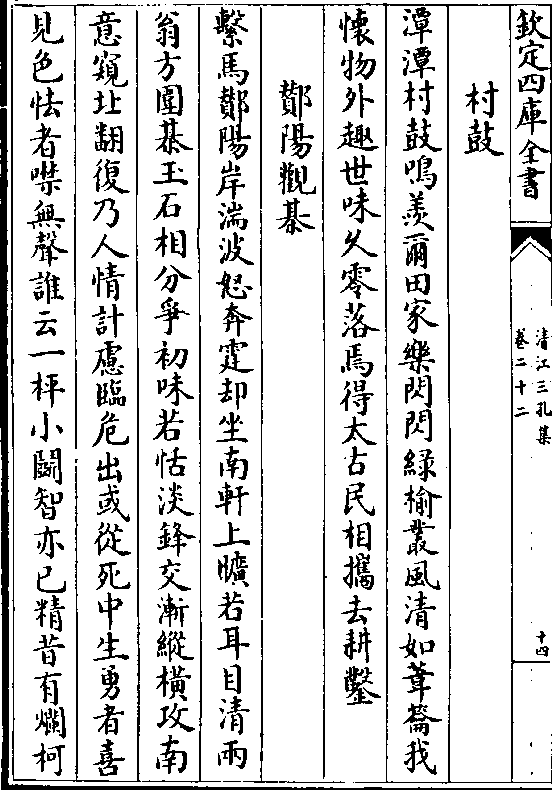 欽定四庫全書
清江三孔集
卷二十二
十四
村鼓
潭潭村鼓鳴羡爾田家樂閃閃綠榆叢風清如葦籥我
懷物外趣世味久零落焉得太古民相攜去耕鑿
鄼陽觀棊
繫馬鄼陽岸湍波怒奔霆却坐南軒上曠若耳目清兩
翁方圍棊玉石相分爭初味若恬淡鋒交漸縱橫攻南
意窺北翻復乃人情計慮臨危出或從死中生勇者喜
見色怯者噤無聲誰云一枰小鬬智亦已精昔有爛柯